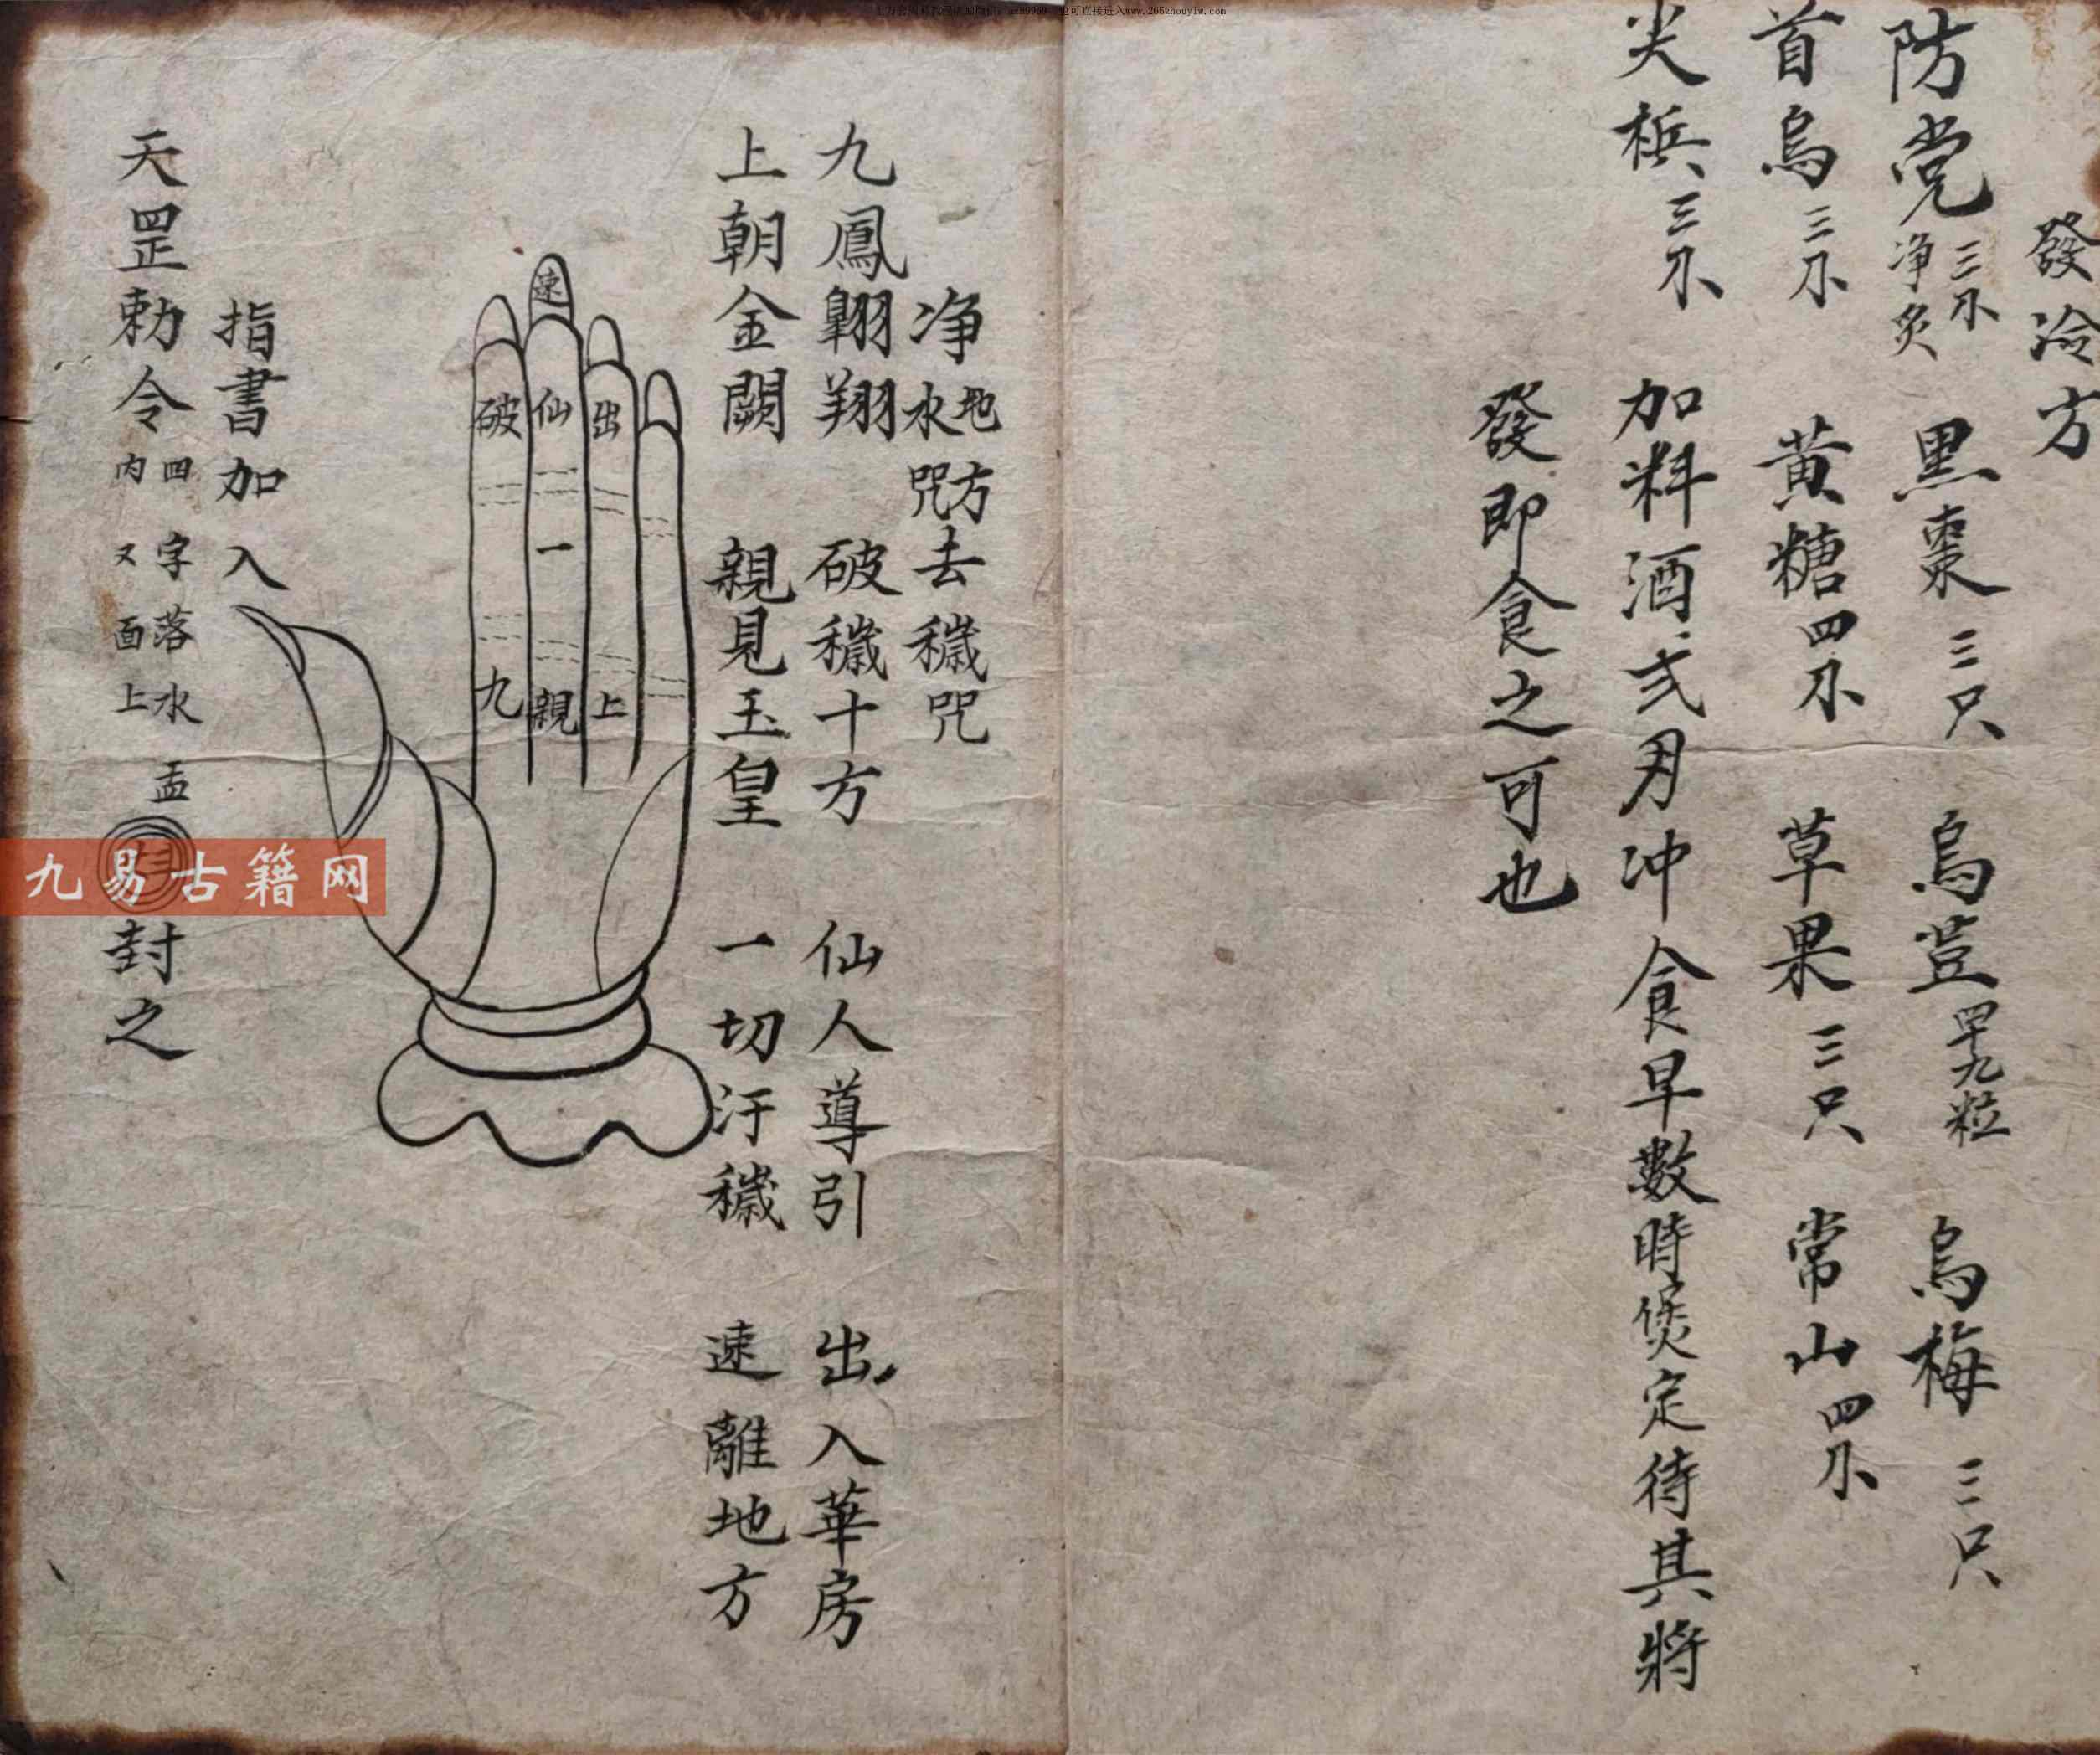 發冷方
防党三小净炙 黑棗三只 烏荳四十九粒 烏梅三只
首烏三小 黃糖四小 草果三只 常山四小
尖梹三小 加料酒弍月冲食早數時煲定待其將
發即食之可也
净水咒地方去穢咒
九鳳翱翔 破穢十方 仙人導引 出入華房
上朝金闕 親見玉皇 一切汙穢 速離地方
速
破 仙 出
一
九 親 上
指書加入
天罡勅令四字落水盂内又面上
封之
九易古籍网
也可直接进入www.265zhouyiw.com